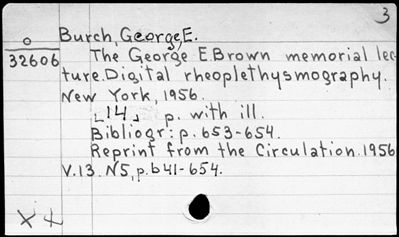 3
Burch, George, E.
O
32606
The George E.Brown memorial lec-
ture. Digital rheoplethysmography.
New York, 1956.
[14] p. with ill.
Bibliogr: p. 653-654.
Reprint from the Circulation. 1956
V.13. N5, p. 641-654.
X 4